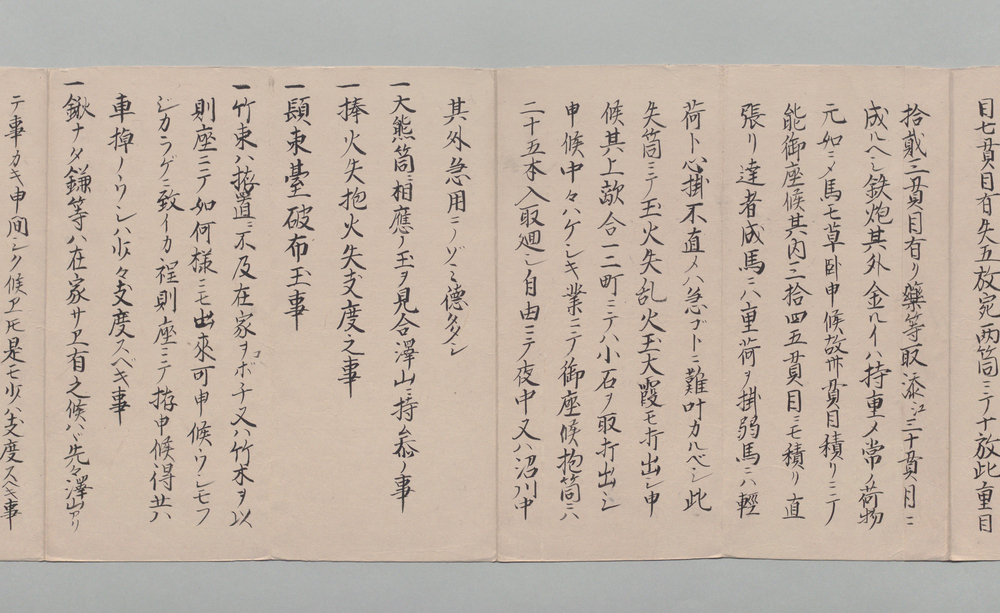 目七貫目有矢五放宛両筒ニテ十放此重目
拾貳三貫目有リ藥等取添ニ三十貫目ニ
成ルヘシ鉄炮其外金ルイハ持重メ常ノ荷物
元如シメ馬モ草臥申候故卅貫目積リニテ
能御座候其内三拾四五貫目ニモ積リ直
張リ達者成馬ニハ重荷ヲ掛弱馬ニハ輕
荷ト心掛不直メハ急ゴトニ難叶カルベシ此
矢筒ニテ玉火矢乱火玉大霞モ折出シ申
候其上敵合一二町ニテハ小石ヲ取折出シ
申候中々ハケシキ業ニテ御座候抱筒ニハ
二十五本入取廻シ自由ニテ夜中又ハ沼川中
其外急用ニノゾミ德多シ
一大熊筒ニ相應ノ玉ヲ見合澤山ニ持参ノ事
一捧火矢抱火矢支度之事
一顕東臺破布玉事
一竹束ハ拵置ニ不及在家ヲコボチ又ハ竹木ヲ以
則座ニテ如何様ニモ出來可申候ウシモフ
シカラゲニ致イカ程則座ニテ拵申候得共ハ
車掉ノウシハ少々支度スベキ事
一鍬ナタ鎌等ハ在家サヱ有之候ハヾ先々澤山アリ
テ事カキ申間シク候ヱ𪜈是モ少ハ支度スベキ事